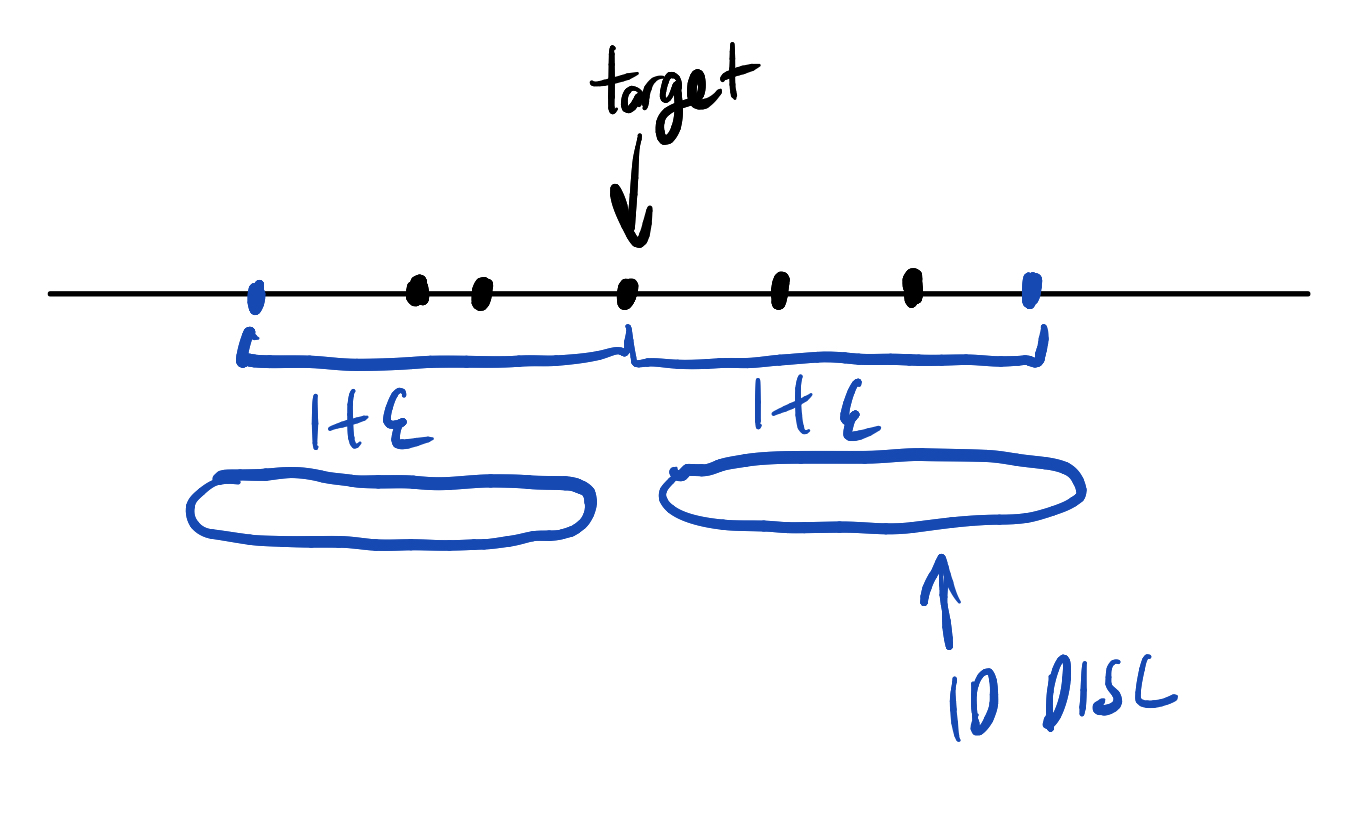 target
1+ε 1+ε
1D DISC